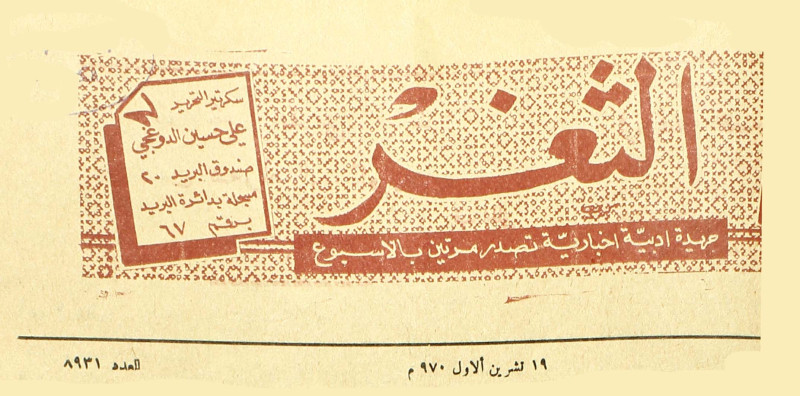 الثغر
جريدة ادبيّة اخباريّة تصدر مرتين بالاسبوع
سكرتير التحرير
علي حسين الدوغجي
صندوق البريد ٢٠
مسجلة بدائرة البريد
برقم ٦٧
١٩ تشرين ألاول ٩٧٠ م
العدد ٨٩٣١